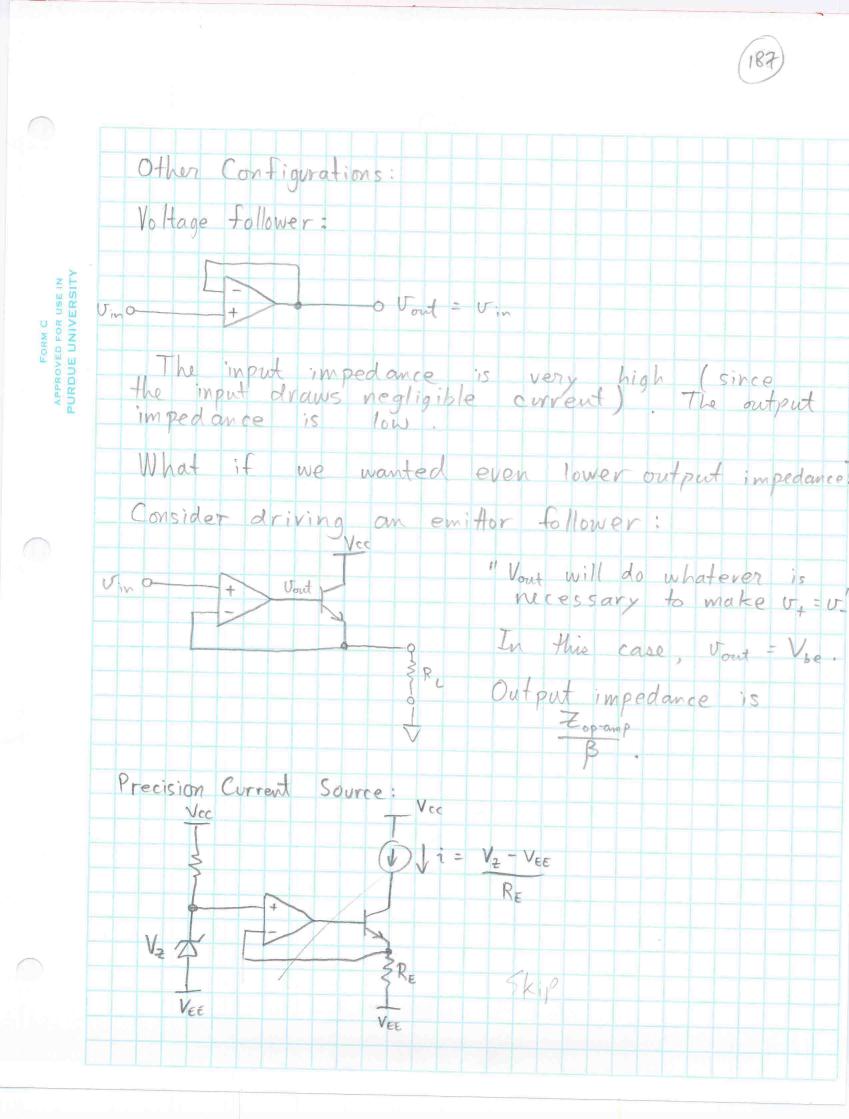 187
FORM C
APPROVED FOR USE IN
PURDUE UNIVERSITY
Other Configurations:
Voltage follower:
−
+
Vin
Vout = Vin
The input impedance is very high (since
the input draws negligible current). The output
impedance is low.
What if we wanted even lower output impedance?
Consider driving an emittor follower:
Vcc
Vin
+
−
Vout
RL
" Vout will do whatever is
necessary to make v+ = v-"
In this case, Vout = Vbe.
Output impedance is
Zop-amp
β .
Precision Current Source:
Vcc
Vcc
i = VZ - VEE
RE
+
−
VZ
RE
Skip
VEE
VEE